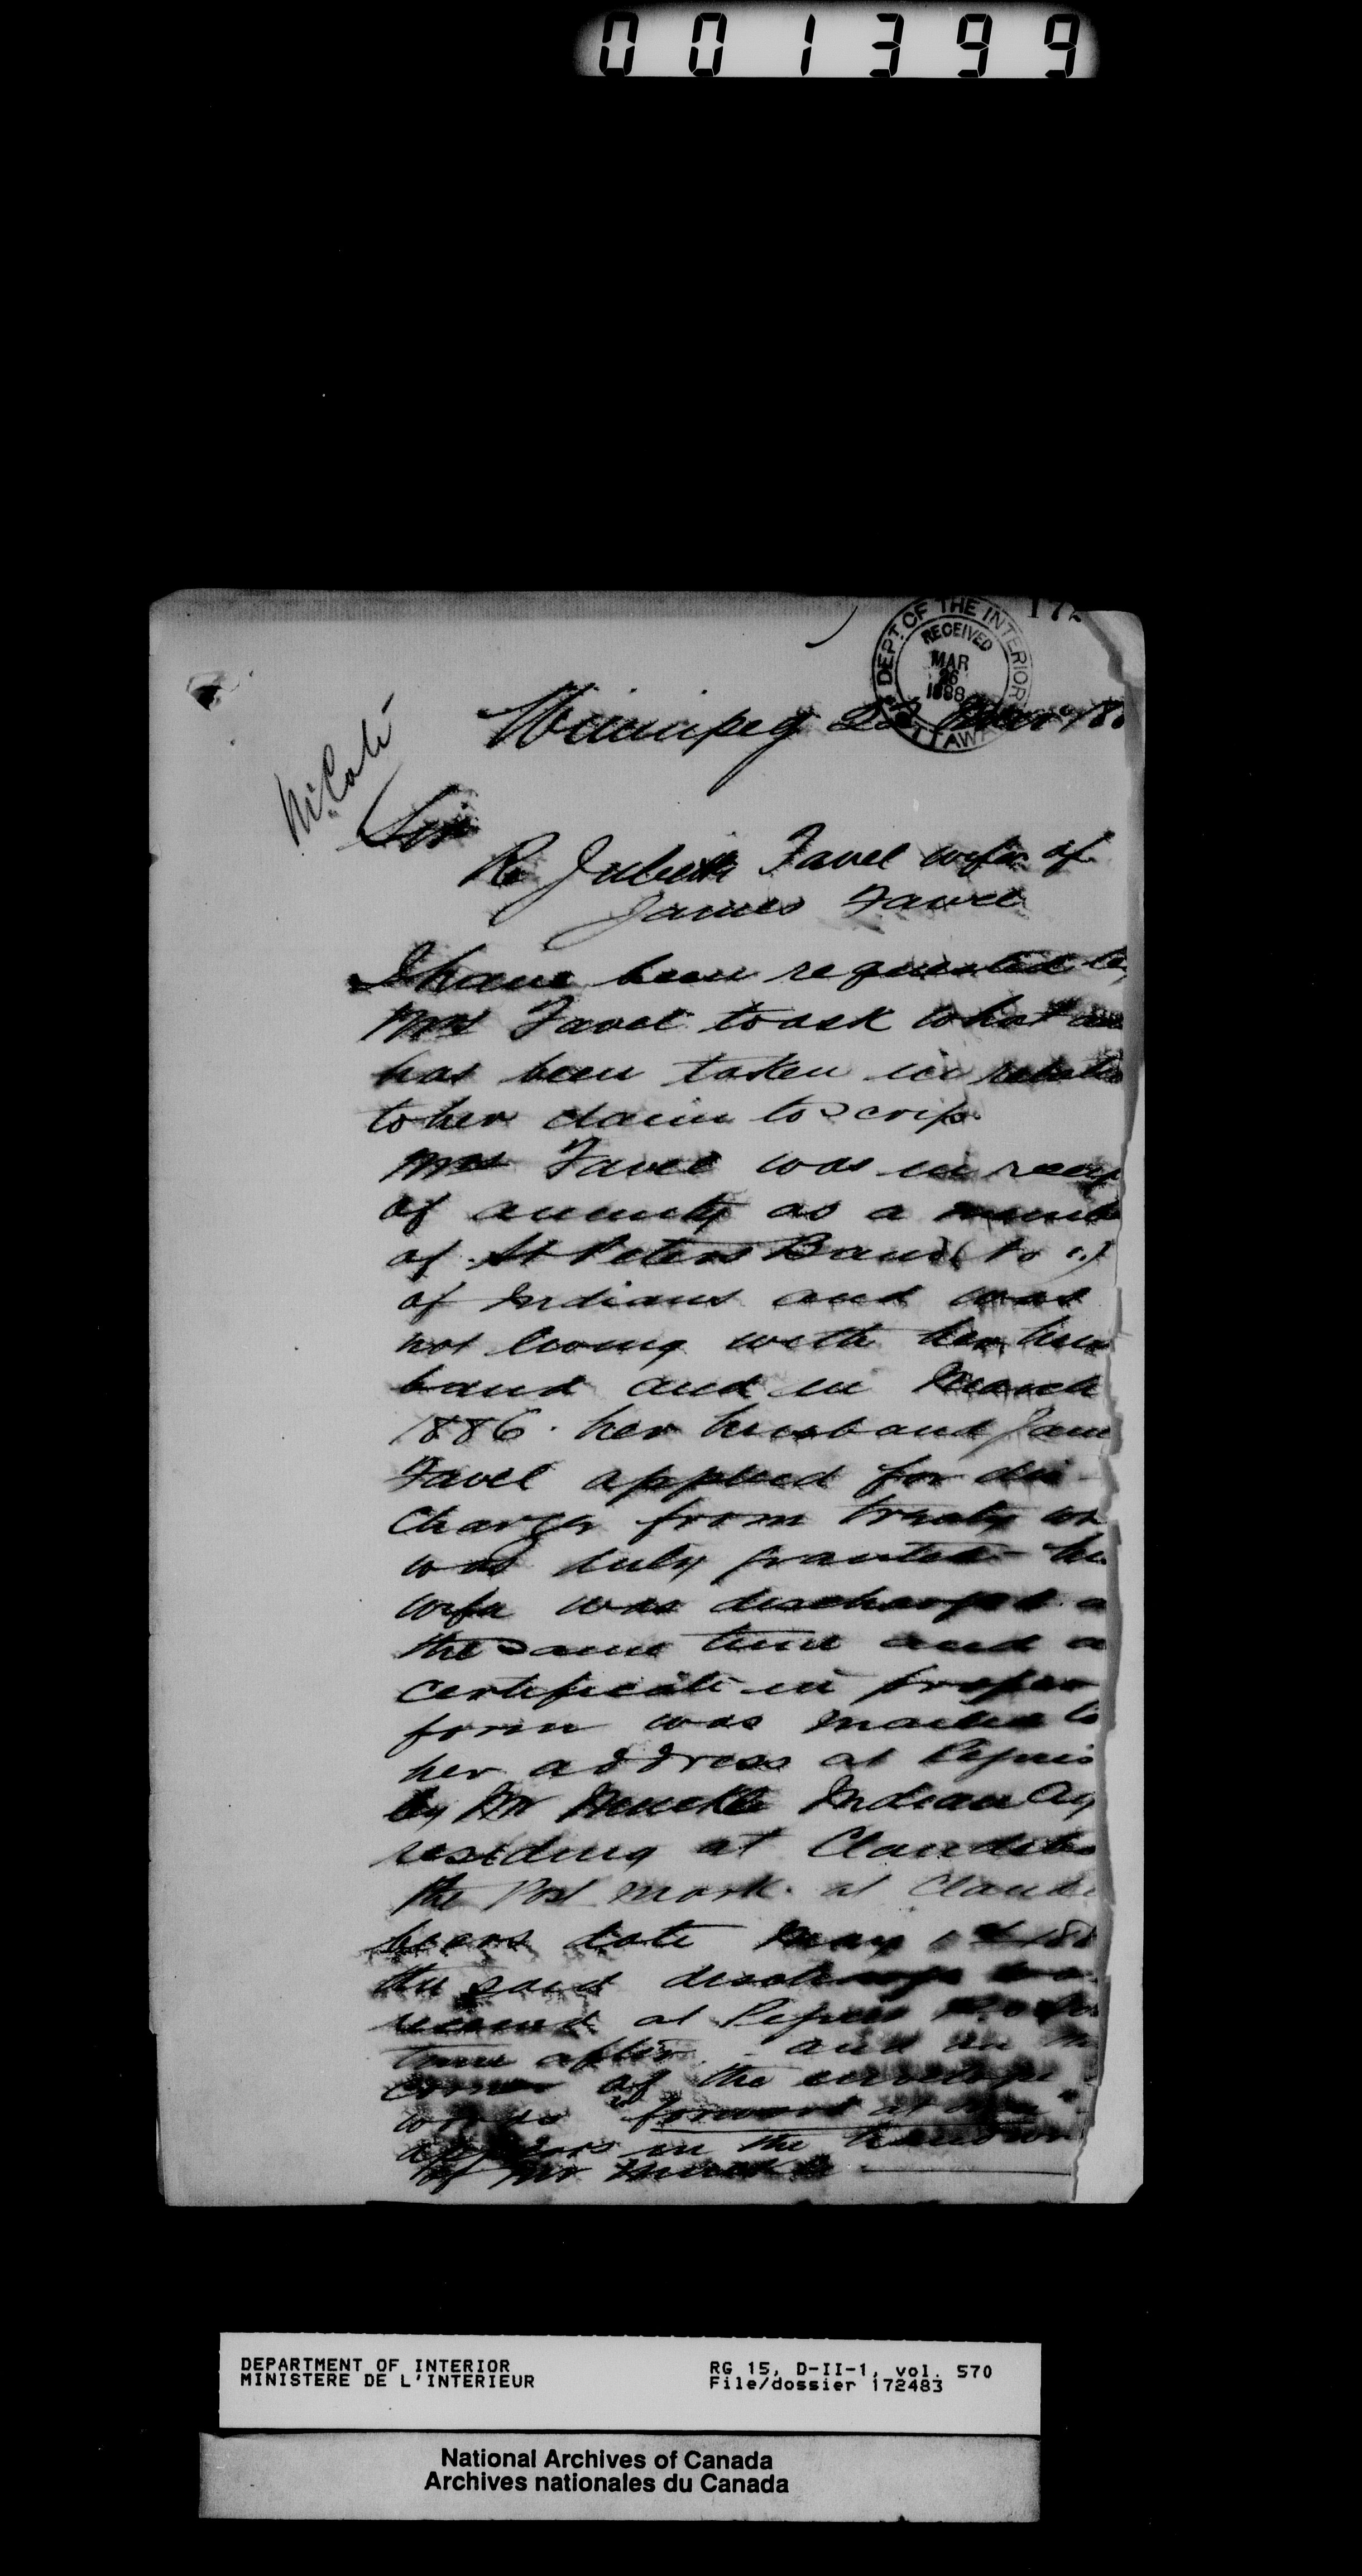 001399
172
DEPT. OF THE INTERIOR
RECEIVED
MAR
26
1888
OTTAWA
Winnipeg 22 Mar 188
Sir
Re Julia Favel wife of
James Favel
I have been requested
Mrs Favel to ask what
has been taken in relatio
to her claim to scrip.
Mrs Favel was in recei
of annuity as a memb
of St Peters Band
of Indians and was
not living with her hus
band and in March
1886. her husband Jam
Favel applied for dis
charge from treaty wh
was duly granted - his
wife was discharged a
the same time and a
certificate in proper
form was mailed to
her address at
by Mr Muckle Indian Ag
residing at Clandebo
the Post mark at Clande
bears date May 188
the said discharge wa
received at
time after - and on
corner of the envelope
words "forward at
appears in the handwr
of Mr Muckle
DEPARTMENT OF INTERIOR
MINISTERE DE L'INTERIEUR
RG 15, D-II-1, vol. 570
File/dossier 172483
National Archives of Canada
Archives nationales du Canada